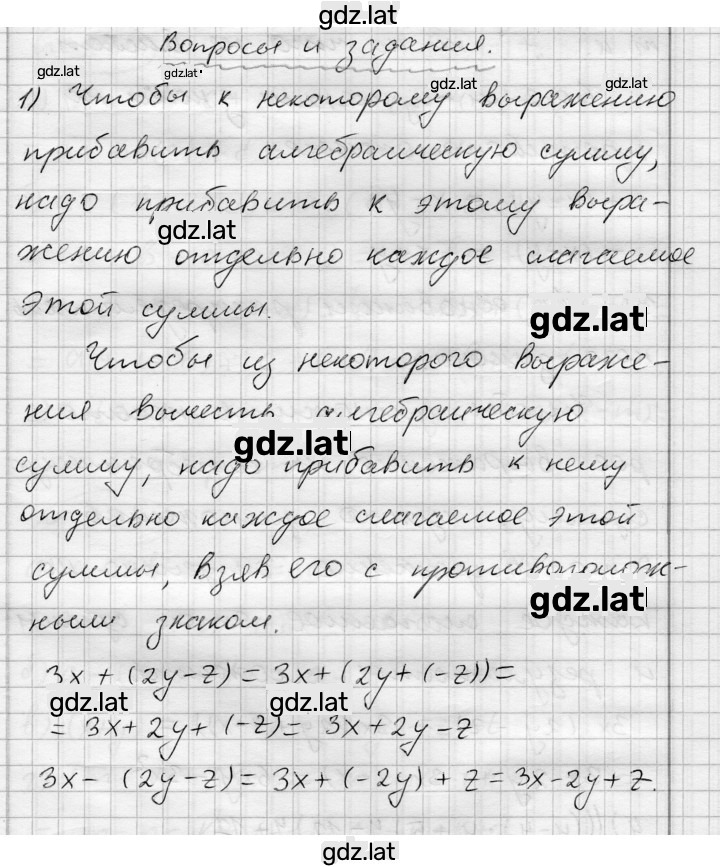 gdz.lat
Вопросы и задания.
gdz.lat gdz.lat gdz.lat
1) Чтобы к некоторому выражению
прибавить алгебраическую сумму,
надо прибавить к этому выра-
gdz.lat
жению отдельно каждое слагаемое
этой суммы.
gdz.lat
Чтобы из некоторого выраже-
ния вычесть алгебраическую
gdz.lat
сумму, надо прибавить к нему
отдельно каждое слагаемое этой
суммы, взяв его с противополож-
gdz.lat
ными знаком.
3x + (2y - z) = 3x + (2y + (-z)) =
gdz.lat gdz.lat
= 3x + 2y + (-z) = 3x + 2y - z
3x - (2y - z) = 3x + (-2y) + z = 3x - 2y + z.
gdz.lat